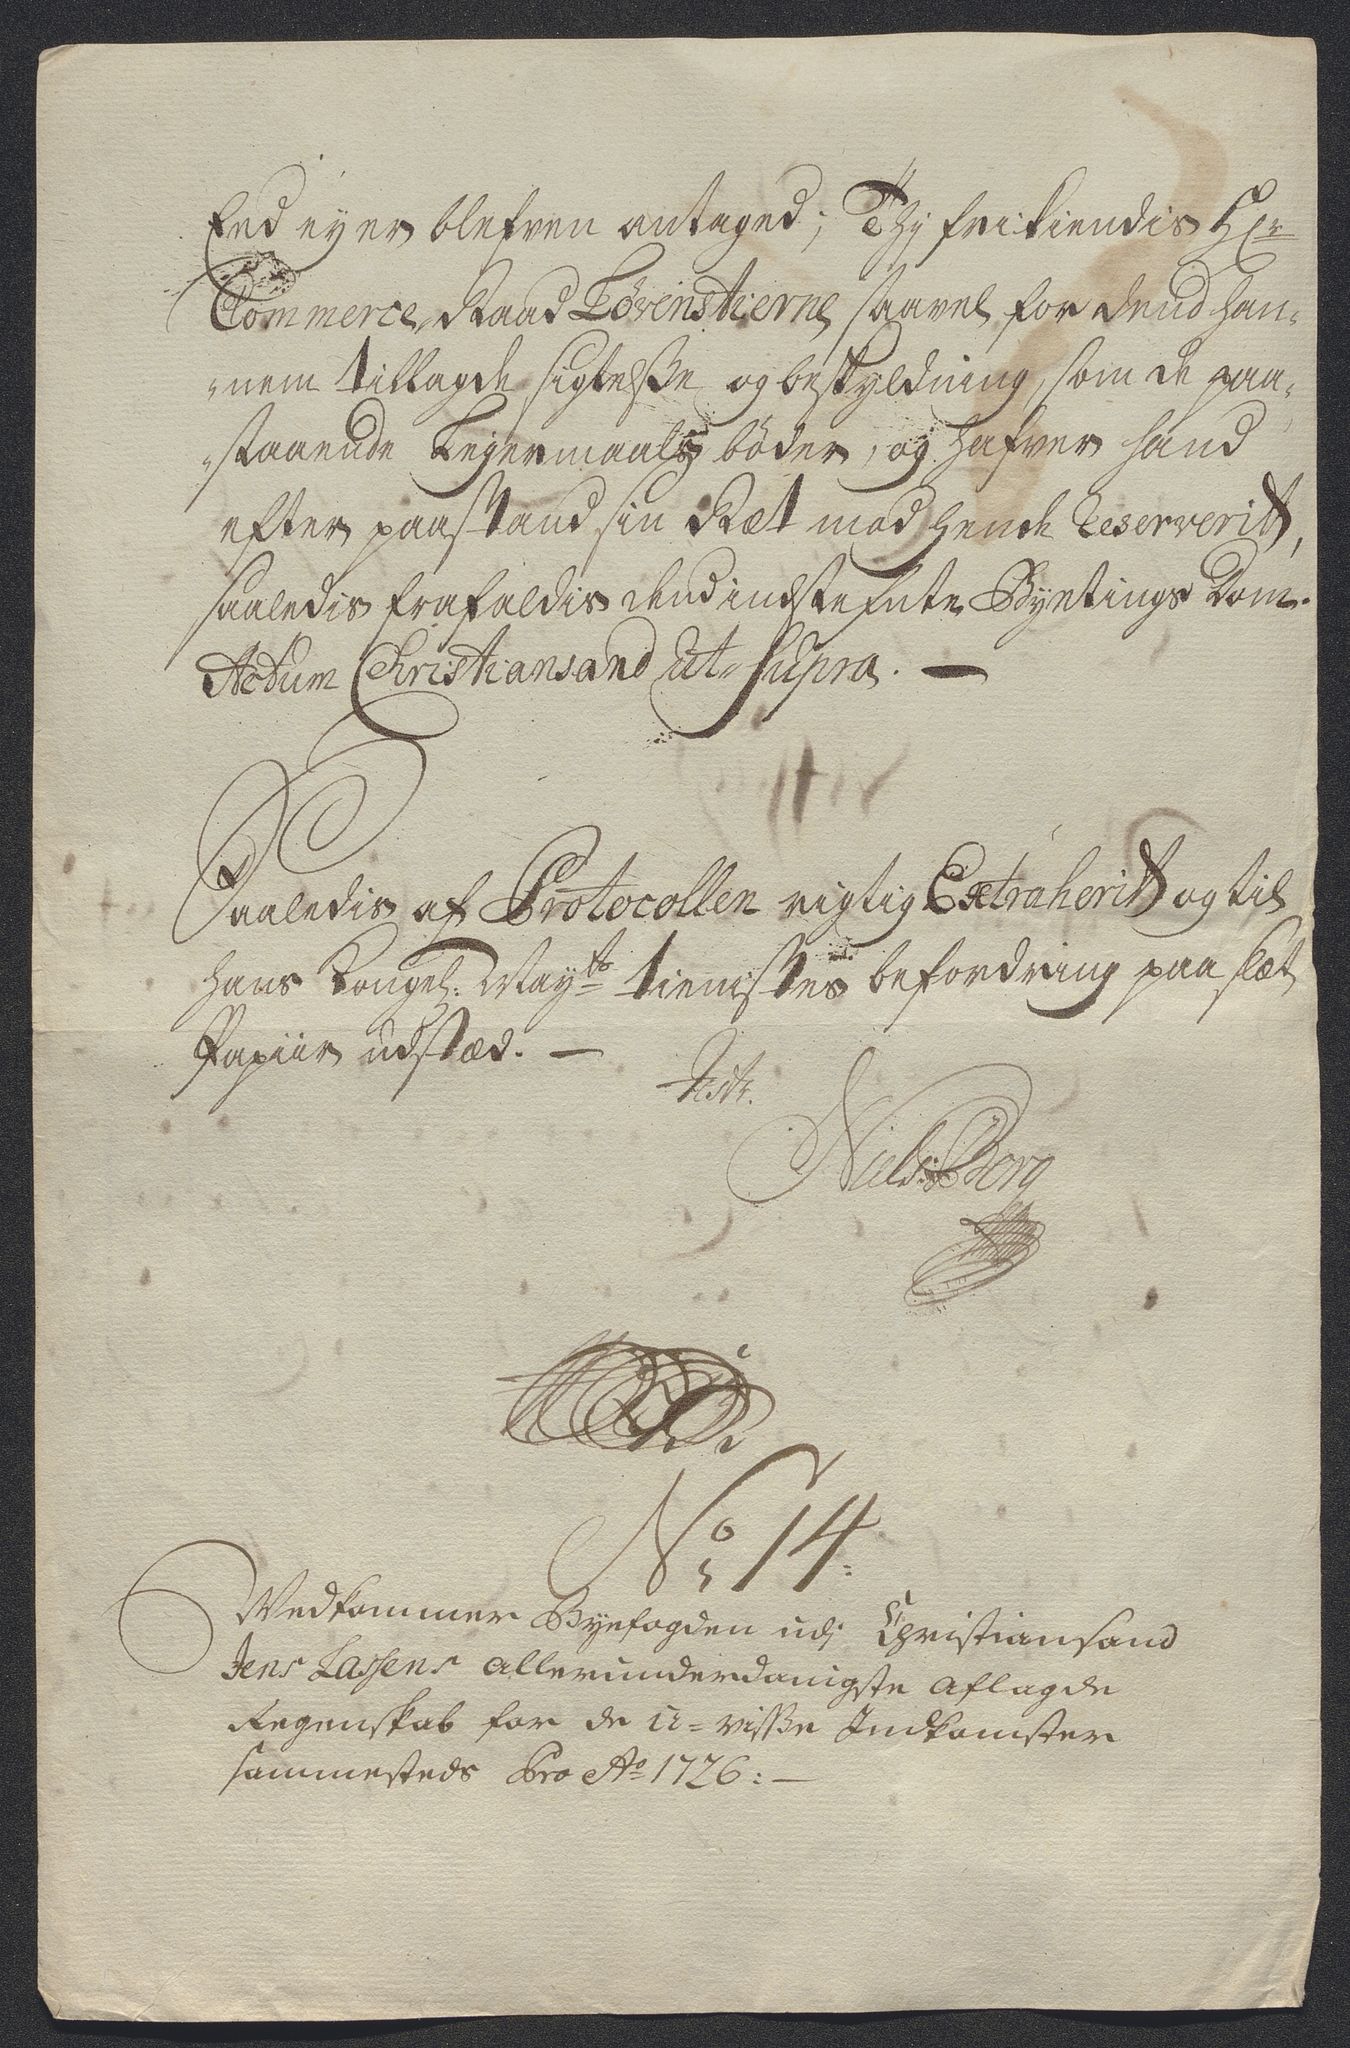 Eed ey er blefven antaged; Thj frikiendis Hr
Commerce-Raad Löwenstierne, saavel for dend han-
-nem tillagde sigtelsse og beskyldning, som de paa-
-staaende Leyermaals böder, og hafver hand
efter paastand sin Ræt mod hende Reserverit,
saaledis frafaldis dend indstefnte Byetings Dom.
Actum Christiansand Ut Supra. —
Saaledis af Protocollen rigtig Extraherit og til
hans Kongel: May:ts tienistes befordring paa slæt
Papiir udstæd. —
Test.
Niels Borg
No 14:
Vedkommer Byefogden udj Christiansand
Jens Lassens allerunderdanigste aflagde
Regenskab for de u-visse Indkomster
sammesteds Pro Ao 1726: —